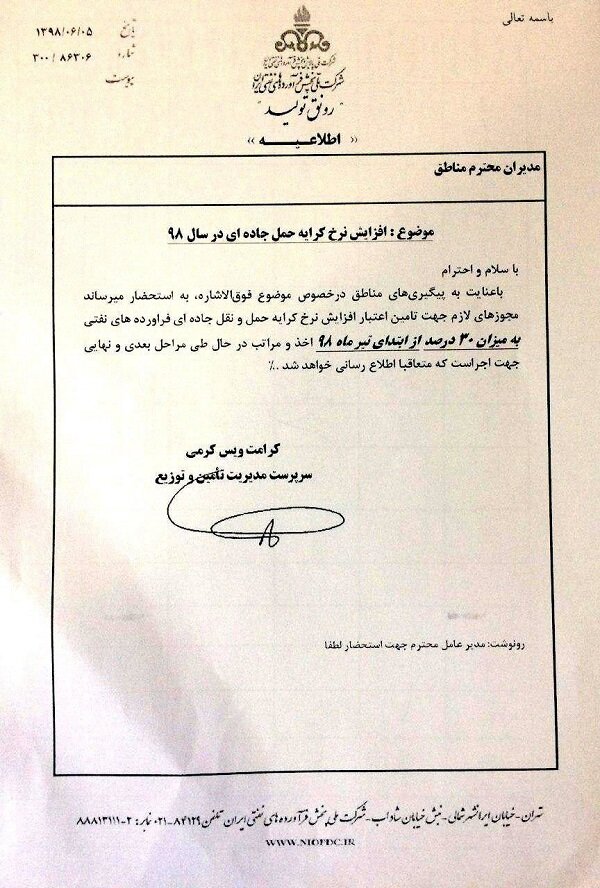 باسمه تعالی
تاریخ ۱۳۹۸/۰۶/۰۵
شماره ۳۰۰/۸۶۳۰۶
پیوست
شرکت ملی پالایش و پخش فرآورده‌های نفتی ایران
شرکت ملی پخش فرآورده‌های نفتی ایران
"رونق تولید"
«اطلاعیـــــه»
مدیران محترم مناطق
موضوع : افزایش نرخ کرایه حمل جاده ای در سال ۹۸
با سلام و احترام
باعنایت به پیگیری‌های مناطق درخصوص موضوع فوق‌الاشاره، به استحضار میرساند
مجوزهای لازم جهت تامین اعتبار افزایش نرخ کرایه حمل و نقل جاده ای فراورده های نفتی
به میزان ۳۰ درصد از ابتدای تیر ماه ۹۸ اخذ و مراتب در حال طی مراحل بعدی و نهایی
جهت اجراست که متعاقبا اطلاع رسانی خواهد شد ../
کرامت ویس کرمی
سرپرست مدیریت تأمین و توزیع
رونوشت: مدیر عامل محترم جهت استحضار لطفا
تهران - خیابان ایرانشهر شمالی - نبش خیابان شاداب - شرکت ملی پخش فرآورده های نفتی ایران تلفن ۸۴۱۲۹-۰۲۱ نمابر: ۲-۸۸۸۱۳۱۱۱
WWW.NIOPDC.IR